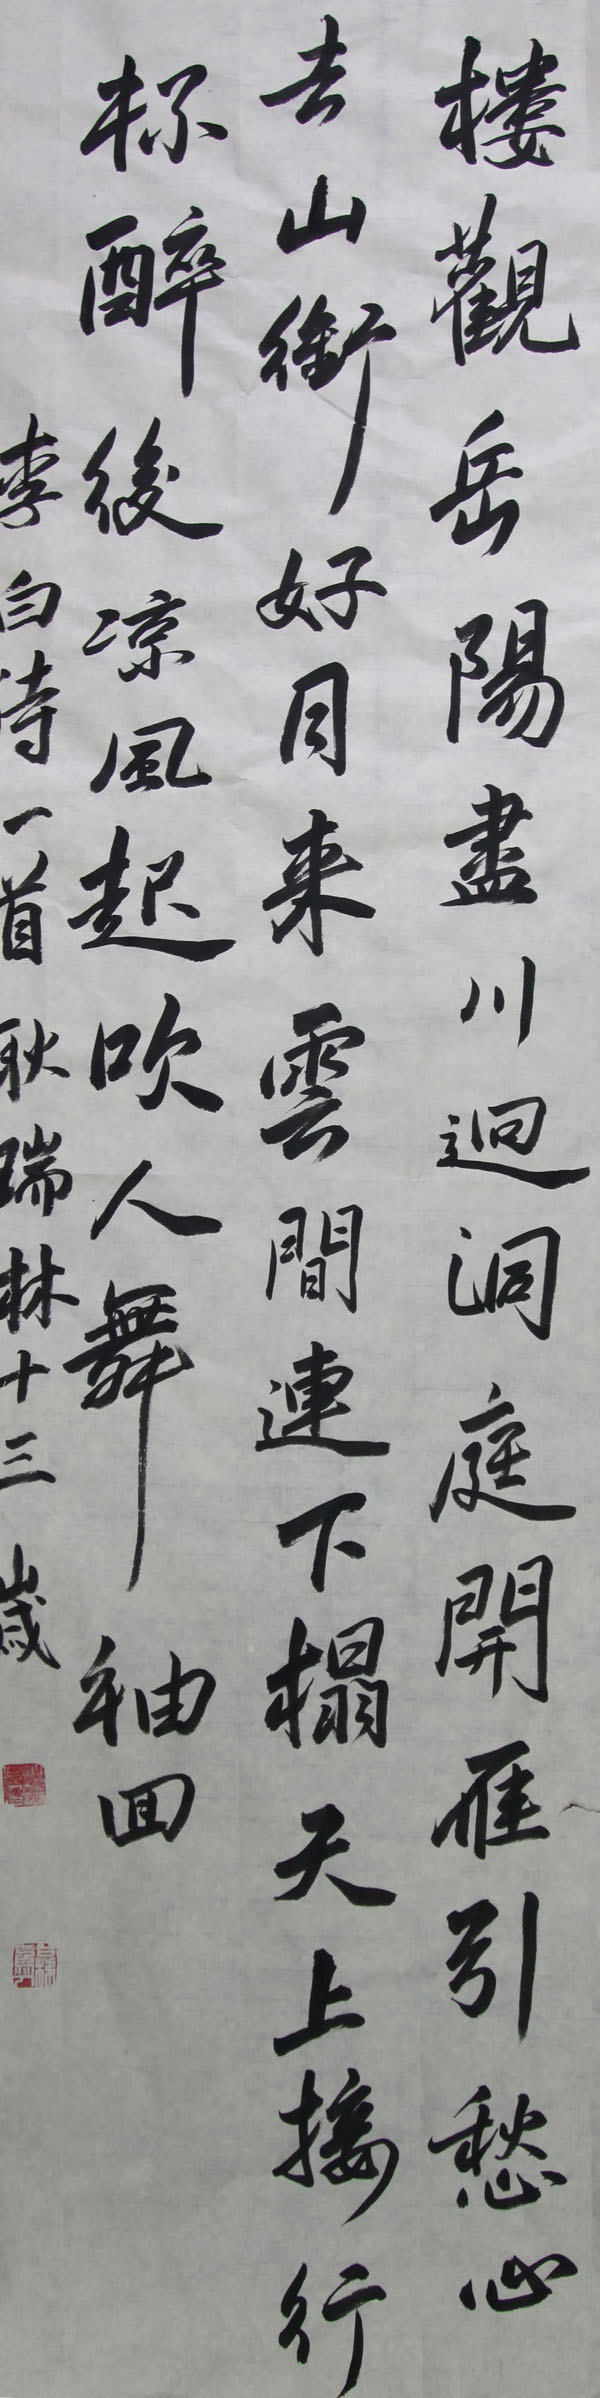 楼觀岳陽盡川迥洞庭開雁引愁心
去山銜好月来雲間連下榻天上接行
杯醉後凉風起吹人舞袖回
李白诗一首耿瑞林十三歲